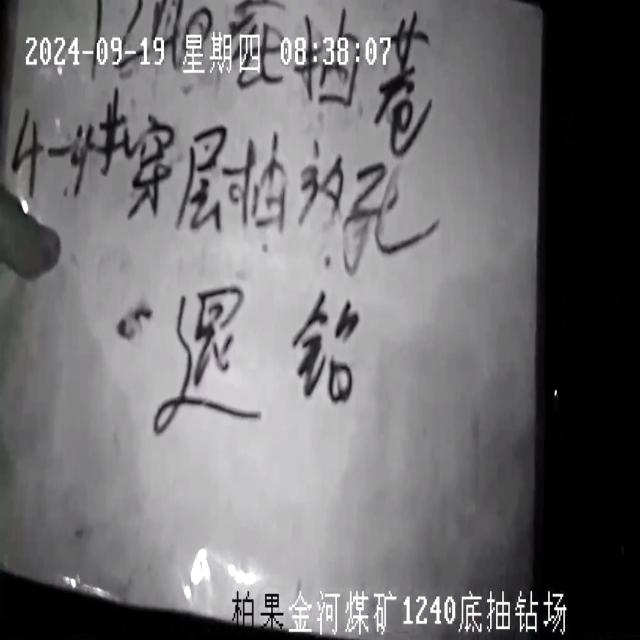 2024-09-19 星期四 08:38:07
底抽巷
4-4#穿层抽放孔
退 钻
柏果金河煤矿1240底抽钻场